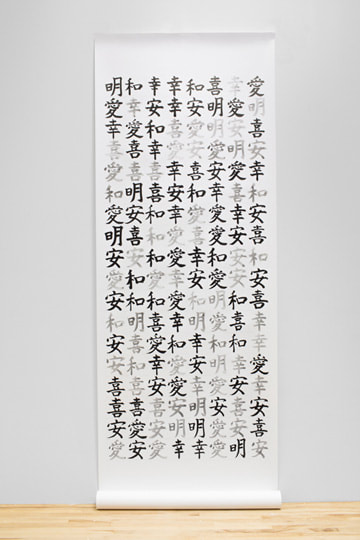 愛明喜安幸和安喜和安喜幸喜愛喜安喜愛
幸愛安明愛喜幸安安喜和喜和喜喜幸安明
喜明明喜安愛愛和和愛明明愛明愛安安愛
和安愛安安喜愛愛幸安幸和明安幸明明安
幸安喜愛幸安幸喜愛幸愛幸和愛愛安明幸
幸安和幸喜喜安和和和和喜幸幸安喜愛愛
和幸愛喜喜明安喜喜和和明喜和愛安愛安
明愛幸喜愛和愛明安愛安和安安喜喜安愛